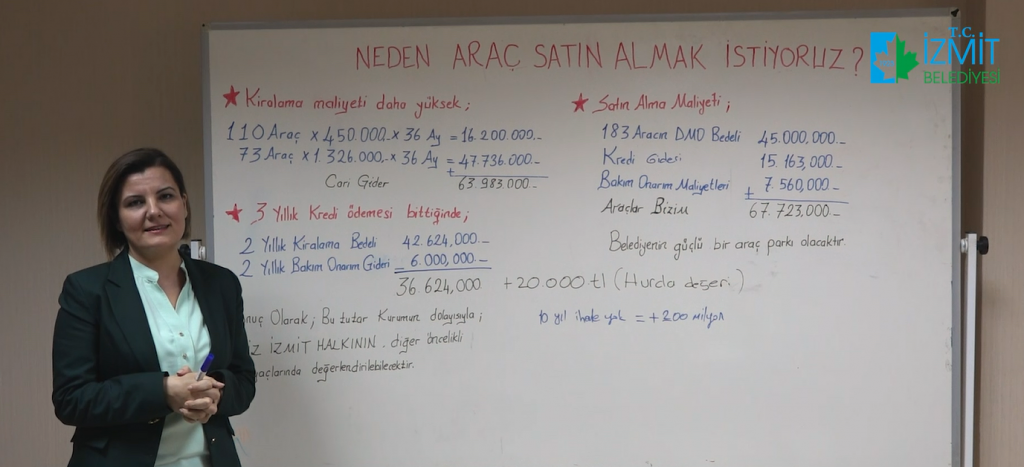 NEDEN ARAÇ SATIN ALMAK İSTİYORUZ?
T.C.
İZMİT
BELEDİYESİ
★ Kiralama maliyeti daha yüksek;
110 Araç x 450.000.- x 36 Ay = 16.200 000.-
73 Araç x 1.326.000.- x 36 Ay = 47.736.000.-
+
Cari Gider 63.983.000.-
★ 3 Yıllık Kredi ödemesi bittiğinde;
2 Yıllık Kiralama Bedeli 42.624,000.-
2 Yıllık Bakım Onarım Gideri - 6.000,000.-
36 624,000 +20.000 tl (Hurda değeri)
Olarak; Bu tutar Kurumun dolayısıyla;
İZMİT HALKININ diğer öncelikli
değerlendirilebilecektir.
★ Satın Alma Maliyeti;
183 Aracın DMO Bedeli 45.000,000.-
Kredi Gideri 15.163,000.-
Bakım Onarım Maliyetleri + 7.560,000.-
Araçlar Bizim 67.723,000.-
Belediyenin güçlü bir araç parkı olacaktır.
10 yıl ihale yok = +200 Milyon